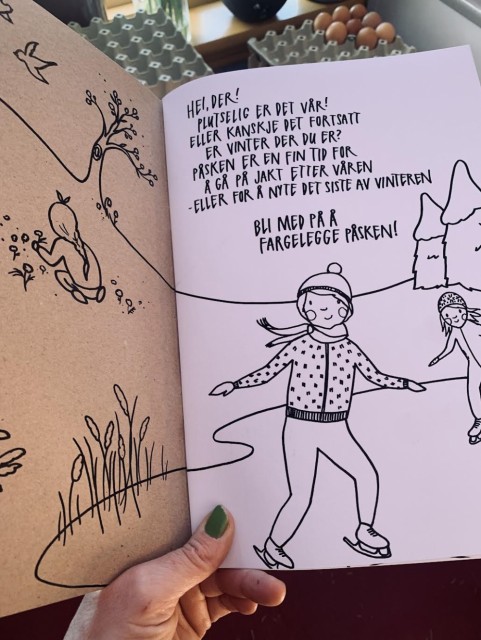 HEI, DER!
PLUTSELIG ER DET VÅR!
ELLER KANSKJE DET FORTSATT
ER VINTER DER DU ER?
PÅSKEN ER EN FIN TID FOR
Å GÅ PÅ JAKT ETTER VÅREN
-ELLER FOR Å NYTE DET SISTE AV VINTEREN
BLI MED PÅ Å
FARGELEGGE PÅSKEN!